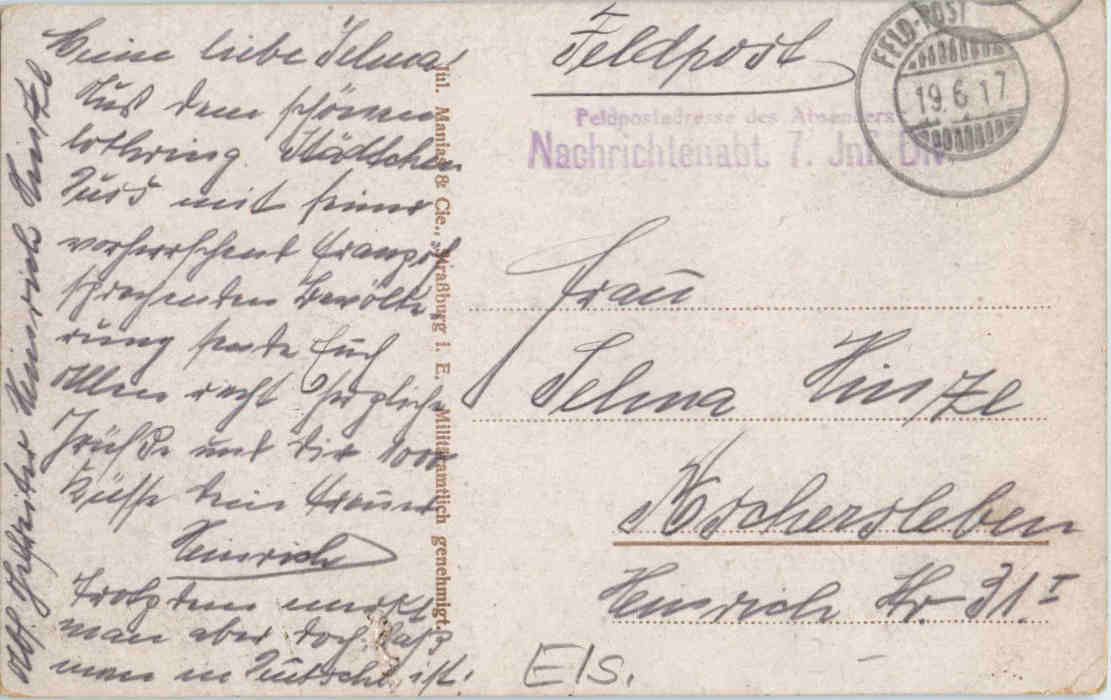 Meine liebe Selma
Aus dem schönen
lothring. Städtchen
mit seiner
vorherrschend französ.
sprechenden Bevölke-
rung sende Euch
Allen recht herzliche
Grüße und Dir 1000
Küsse Dein treuer
Heinrich
Trotzdem merkt
man aber doch, daß
man in Deutschl. ist.
Abs. Gefreiter Heinrich Hintze
Jul. Manias & Cie., Straßburg i. E. Militäramtlich genehmigt.
Feldpost
FELD-POST
19.6.17
Feldpostadresse des Absenders:
Nachrichtenabt. 7. Inf. Div.
Frau
Selma Hintze
Aschersleben
Heinrich Str. 31 I
Els.